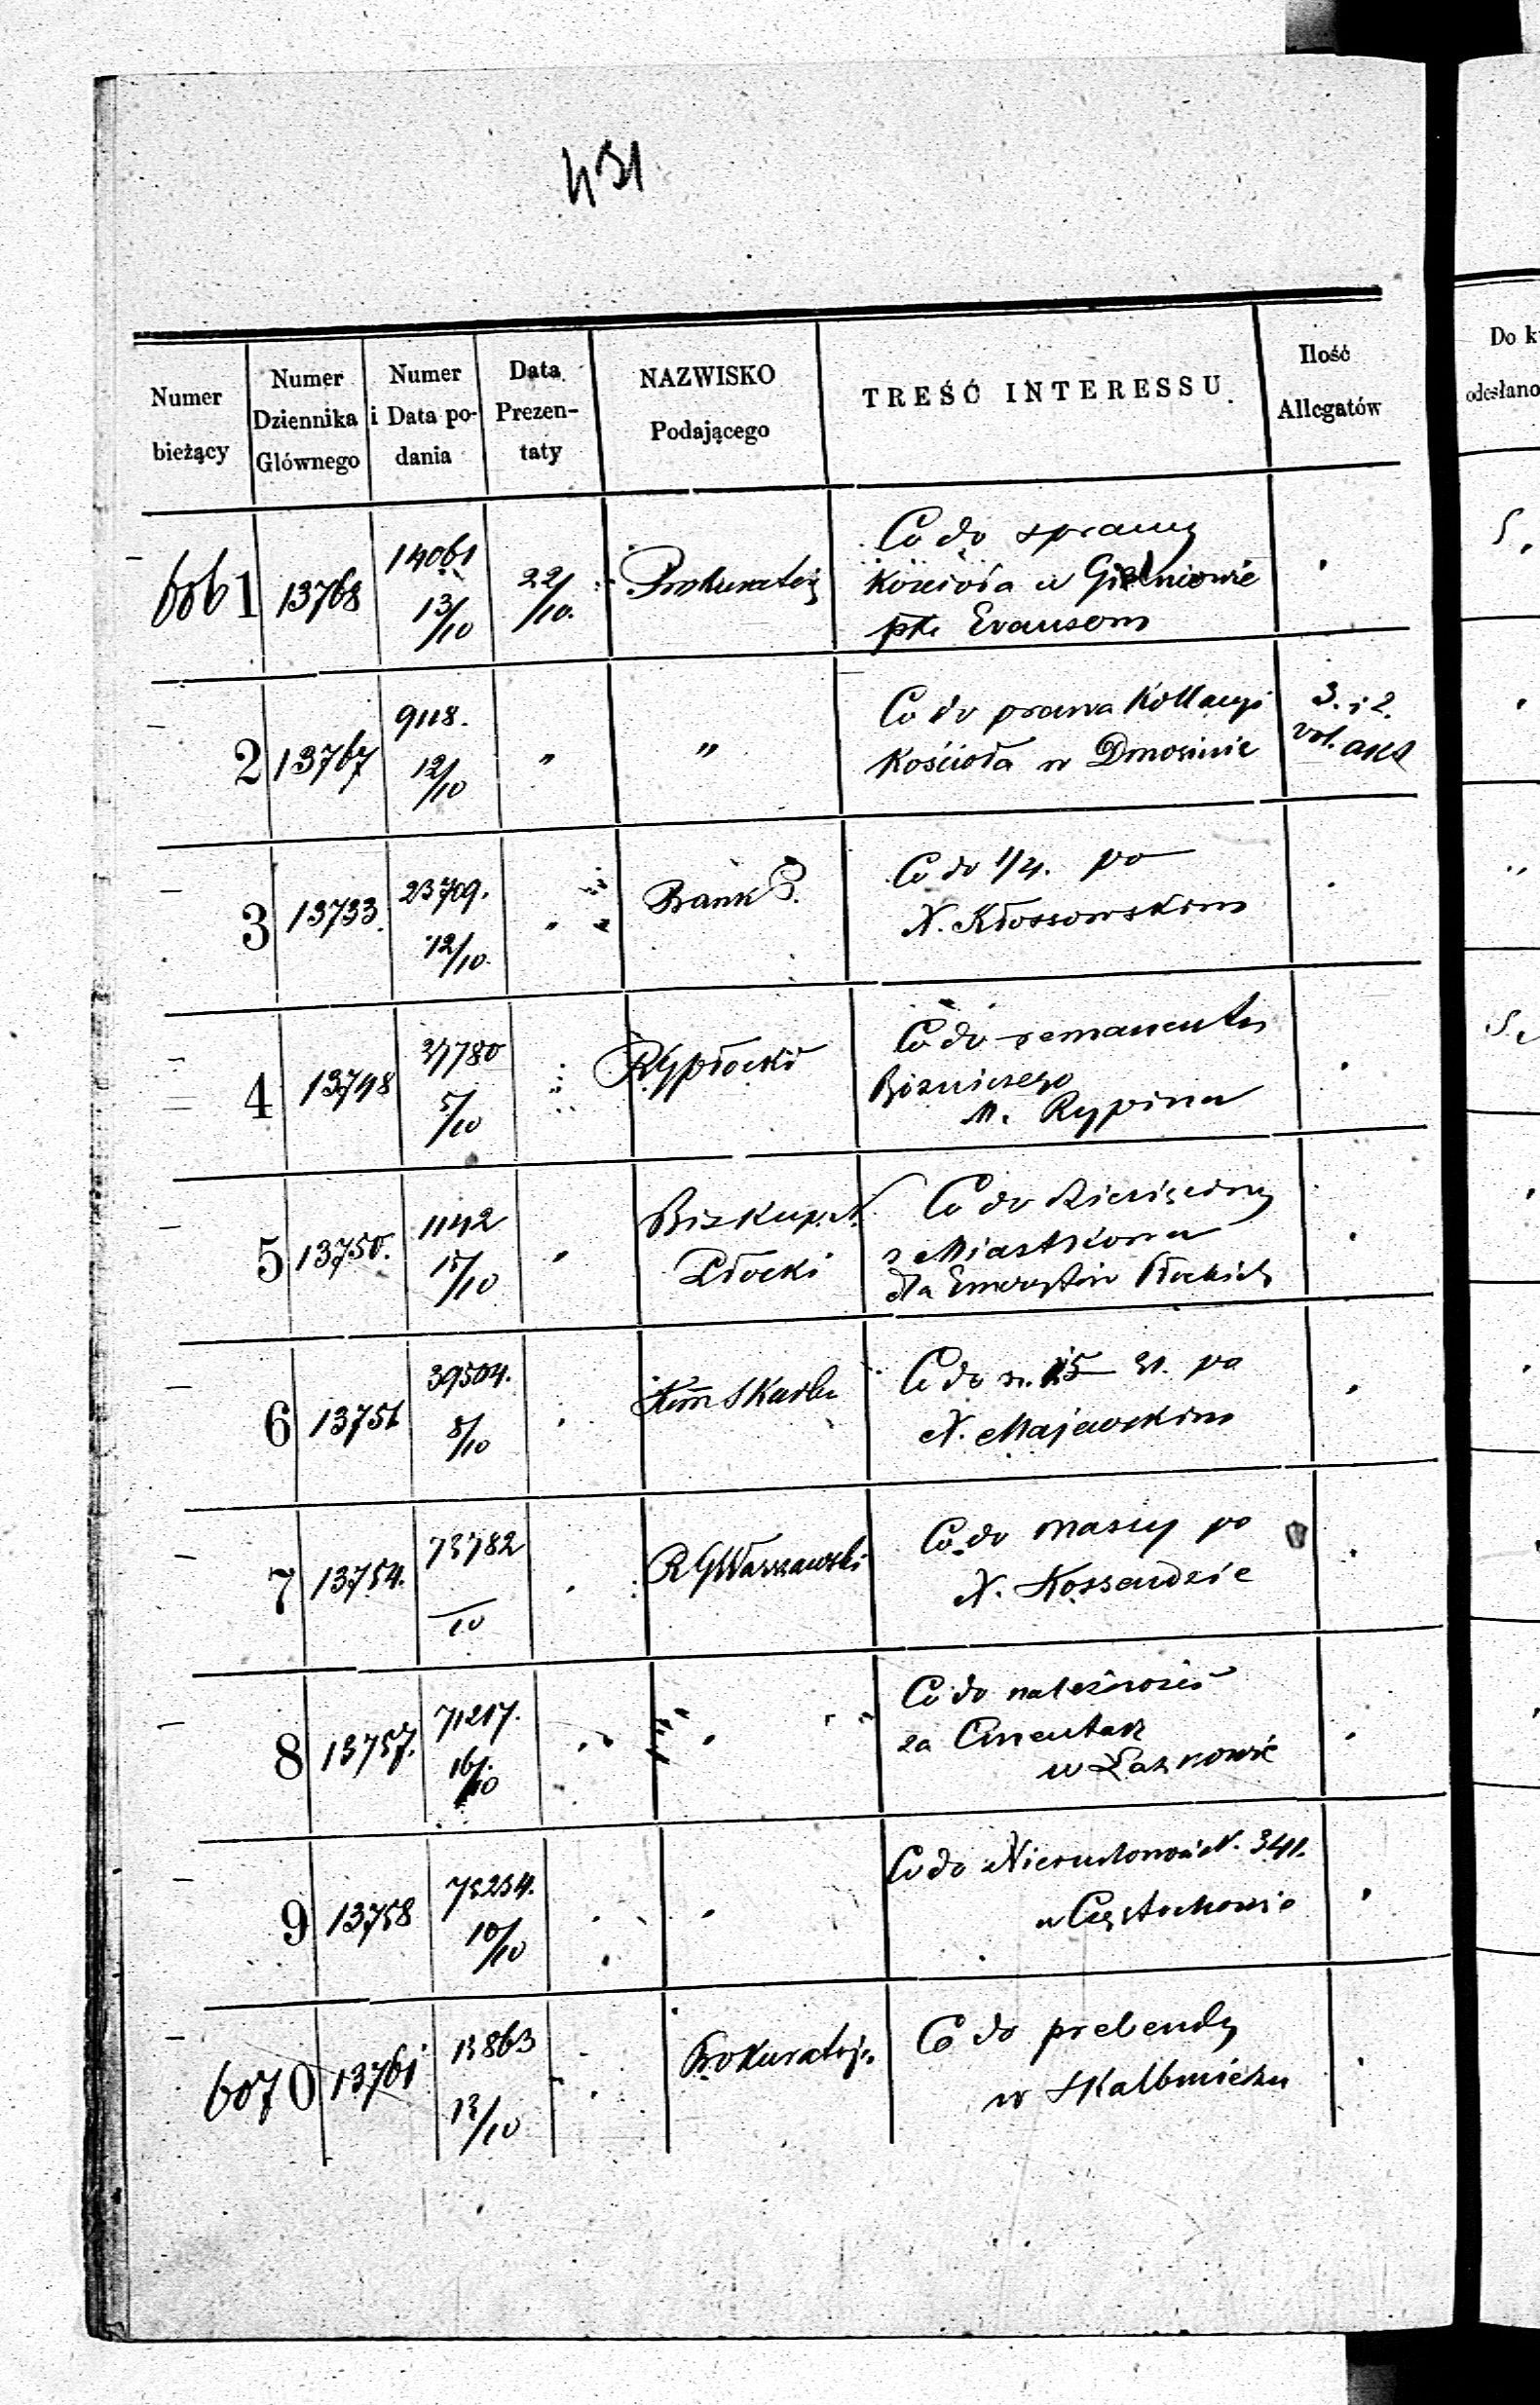 431
Numer bieżący
Numer Dziennika Głównego
Numer i Data podania
Data Prezentaty
NAZWISKO Podającego
TREŚĆ INTERESSU.
Ilość Allegatów
Do k
odesłano
6061 13768 14061 13/10 22/10. Prokuratorja
Co do sprawy
Kościoła w Gielniowie
ptko Evansom
2 13767 9118. 12/10 " "
Co do prawa Kollacyi
Kościoła w Dmosinie
3. i 2.
vol. akt
3 13733. 23709. 12/10. "
Bank P.
Co do 1/4. po
N. Kłossowskim
4 13748 37780 5/10
RGPłocki
Co do remanentu
Bożniczego
M. Rypina
5 13750. 1142 15/10 "
Biskup. N.
Płocki
Co do
z Miastkowa
dla Emerytów Płockich
6 13751 39504. 8/10
Kom Skarbu
Co do rs. 15 31. po
N. Majewskim
7 13754. 73782 /10
RGWarszawski
Co do massy po
N. Kossendzie
8 13757. 71217. 16/10 "
Co do należności
za Cmentarz
w Łaznowie
9 13758 75254. 10/10 "
Co do Nieruchomości N. 341.
w Częstochowie
6070 13761 13863 13/10
Prokuratorja
Co do prebendy
w Skalbmierzu